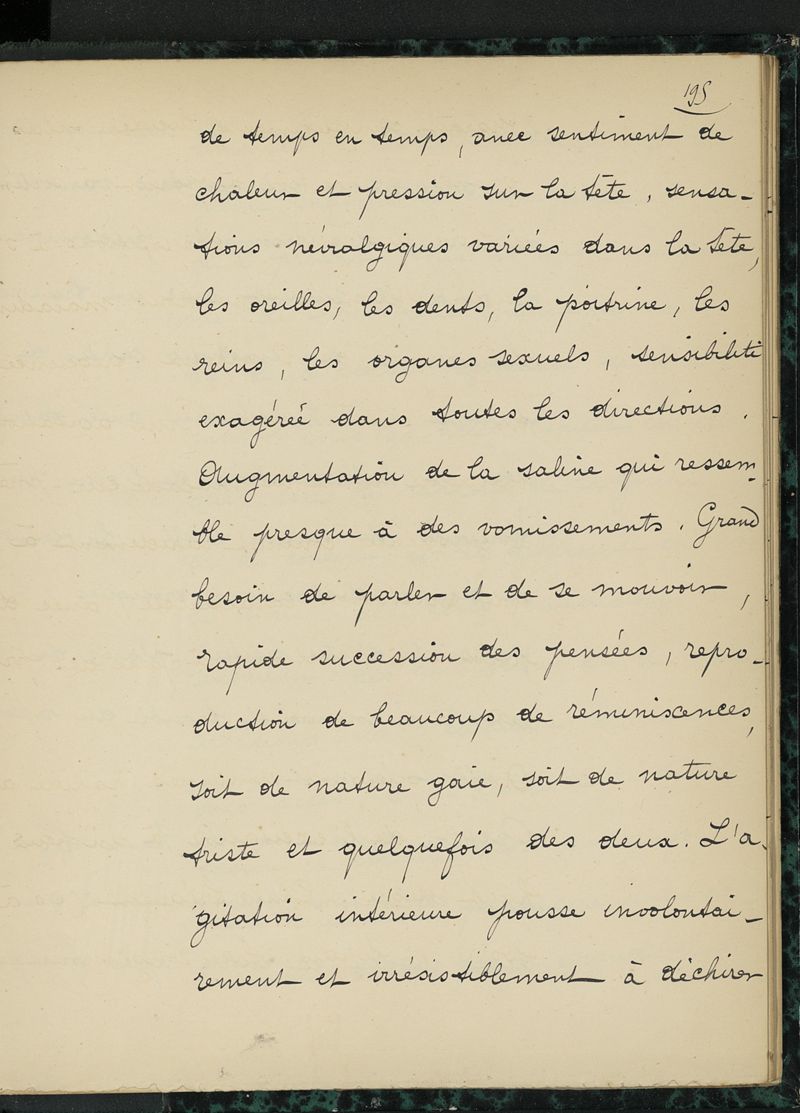 195
de temps en temps, avec sentiment de
chaleur et pression sur la tête, sensa-
tions névralgiques variées dans la tête,
les oreilles, les dents, la poitrine, les
reins, les organes sexuels, sensibilité
exagérée dans toutes les directions.
Augmentation de la saline qui ressem-
ble presque à des vomissements. Grand
besoin de parler et de se mouvoir,
rapide succession des pensées, repro-
duction de beaucoup de réminiscences,
soit de nature gaie, soit de nature
triste et quelquefois des deux. L'a-
gitation intérieure pousse involontai-
rement et irrésistiblement à déchirer